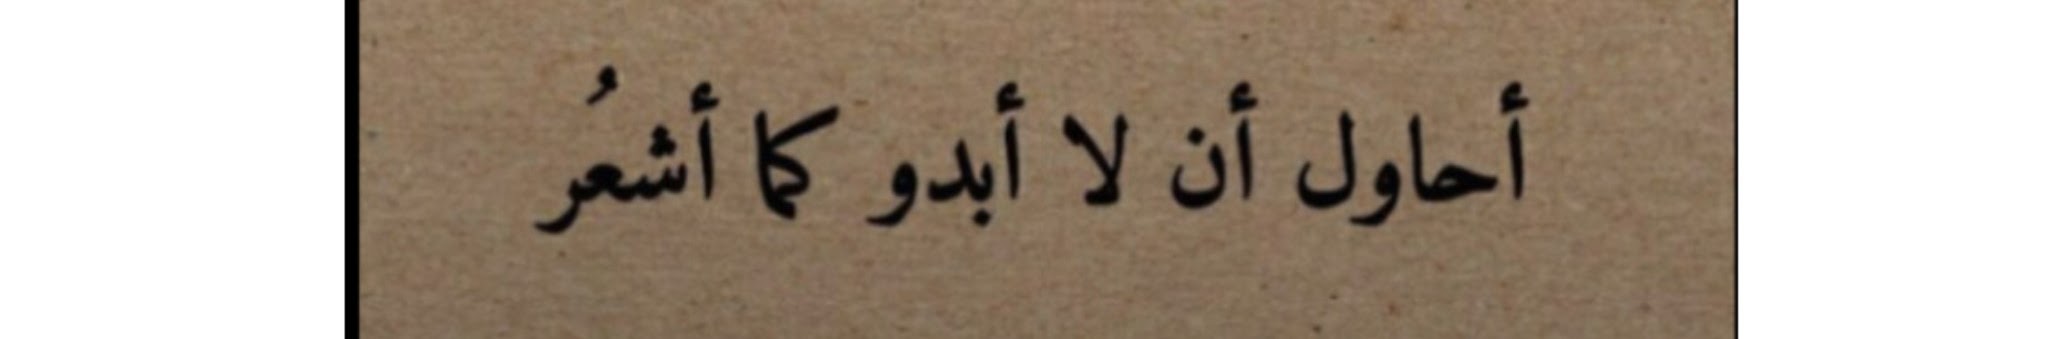 أحاول أن لا أبدو كما أشعُر